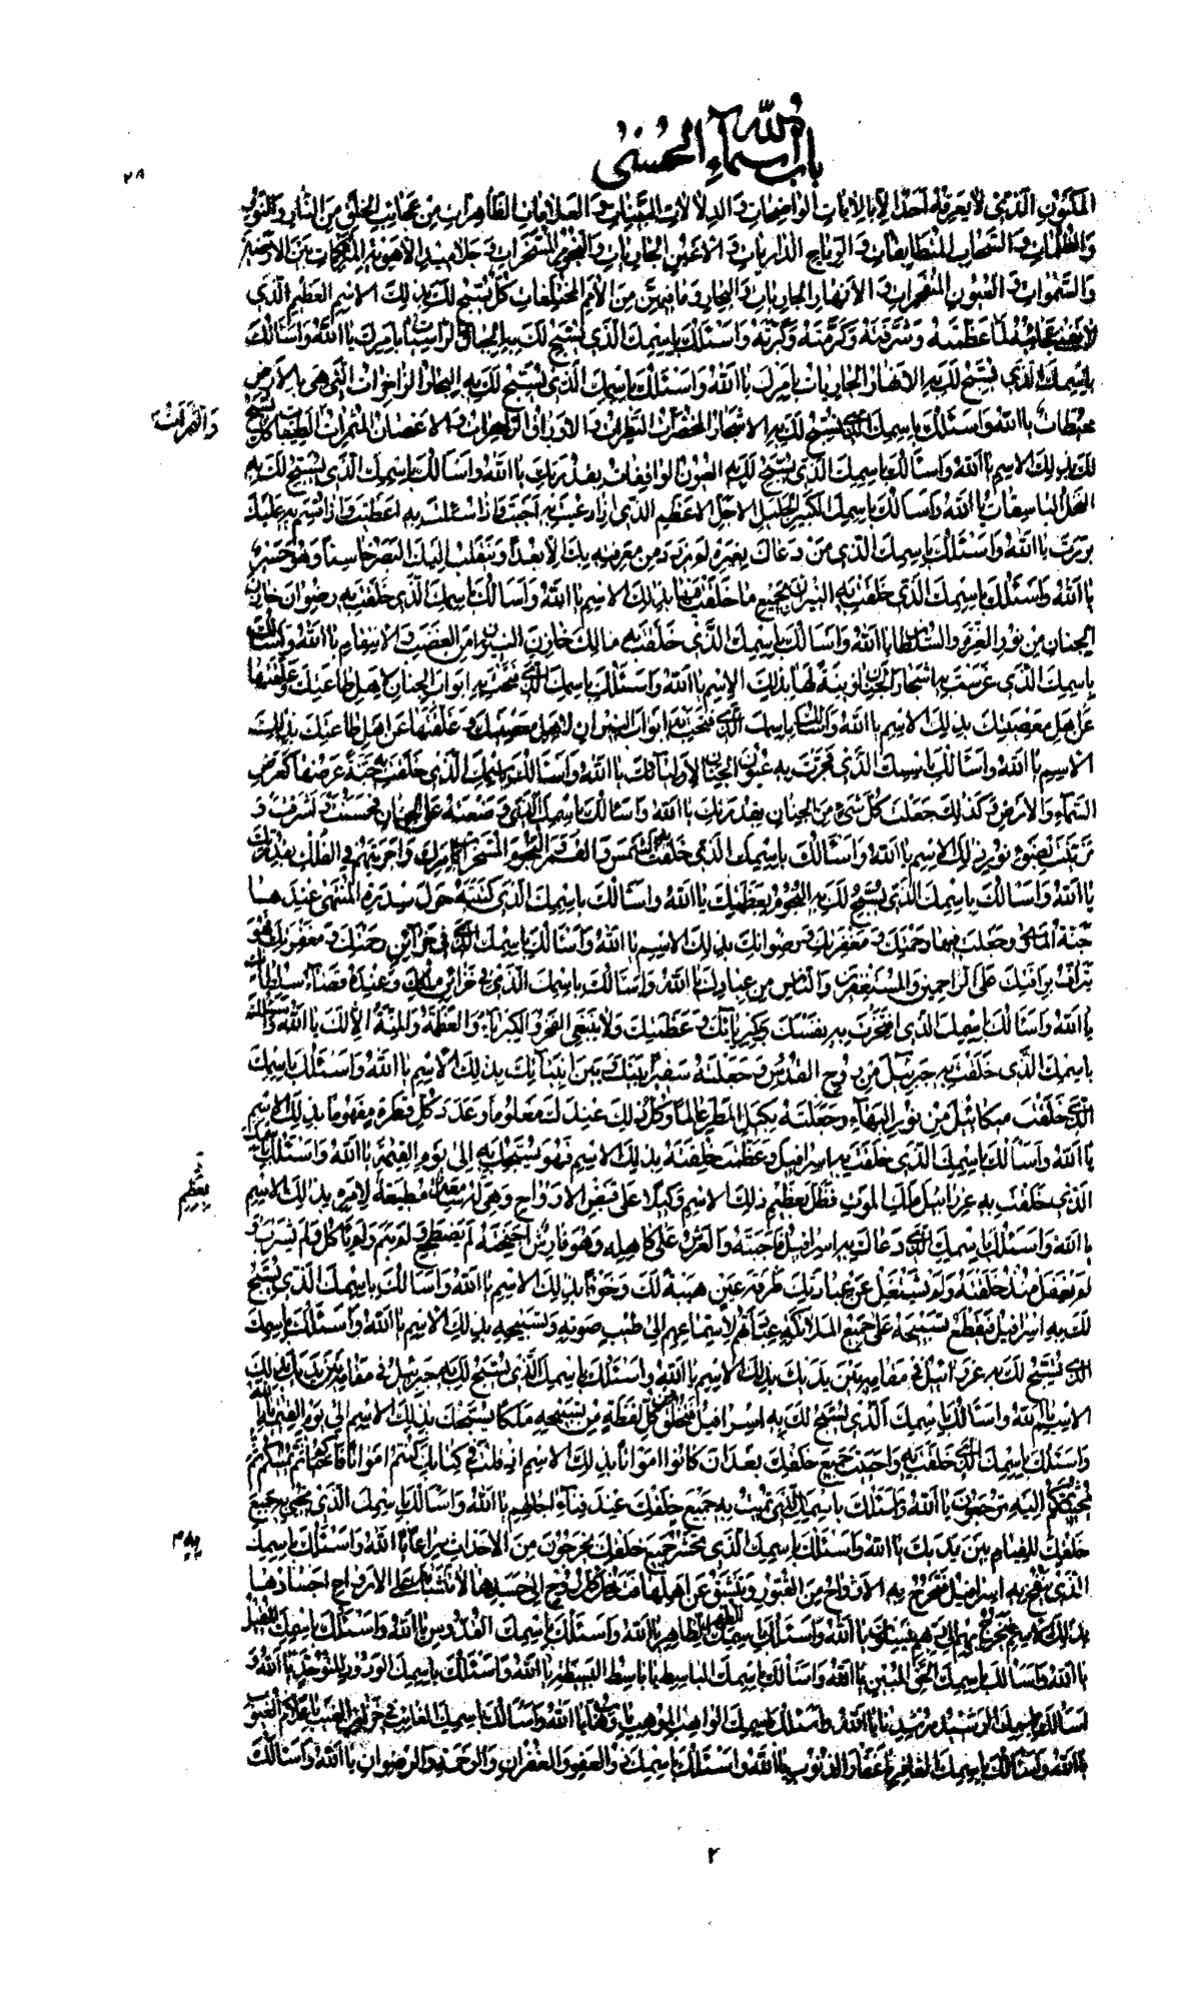 باب اسماء الله الحسنى
٢٨
المكنون الذي لا يعرفه احد الا بالايات الواضحات و الدلالات البينات و العلامات الظاهرات من عجائب الخلق من النار و النور
و الظلمات و السحاب المتطابقات و الرياح الذاريات و الاعين الجاريات و النجوم المسخرات و جلاميد الاهوية المتحركات بين الارضين
و السموات و العيون المنفجرات و الانهار الجاريات و البحار و ما فيهن من الامم المختلفات كل يسبح لك بذلك الاسم العظيم الذي
لا عظمته و شرفته و كرمته و كبرته و اسئلك باسمك الذي يسبح لك به الجبال الراسيات بامرك يا الله و اسالك
باسمك الذي يسبح لك به الانهار الجاريات بامرك يا الله و اسئلك باسمك الذي يسبح لك به البحار الزاخرات التي هي بالارض
محيطات يا الله و اسئلك باسمك الذي يسبح لك به الاشجار المخضرات النظرات و الاوراق الزاهرات و الاغصان المثمرات الطيبات كل يسبح
لك بذلك الاسم يا الله و اسالك باسمك الذي يسبح لك به العيون الواقفات بقدرتك يا الله و اسالك باسمك الذي يسبح لك به
النخل الباسقات يا الله و اسالك باسمك الكبير الجليل الاجل الاعظم الذي اذا دعيت به اجبت و اذا سئلت به اعطيت و اذا اقسم به عليك
بررت يا الله و اسئلك باسمك الذي من دعاك بغيره لم يزدد من معرفته بك الا بعدا و ينقلب اليك البصر خاسئا و هو حسير
يا الله و اسئلك باسمك الذي خلقت به النيران و جميع ما خلقت فيها بذلك الاسم يا الله و اسالك باسمك الذي خلقت به رضوان خازن
الجنان من نور العزة و السلطان يا الله و اسالك باسمك الذي خلقت به مالك خازن النيران من الغضب و الانتقام يا الله و اسالك
باسمك الذي غرست به اشجار الجنان و زينة لها بذلك الاسم يا الله و اسئلك باسمك الذي فتحت به ابواب الجنان لاهل طاعتك و غلقتها
عن اهل معصيتك بذلك الاسم يا الله و اسالك باسمك الذي فتحت به ابواب النيران لاهل معصيتك و غلقتها عن اهل طاعتك بذلك
الاسم يا الله و اسالك باسمك الذي فجرت به عيون الجنان لاوليائك يا الله و اسالك باسمك الذي خلقت به جنة عرضها كعرض
السماء و الارض و كذلك جعلت كل شيء من الجنان بقدرتك يا الله و اسالك باسمك الذي وضعته على الجنان فحسنت و اشرقت و
تزينت بضوء نور ذلك الاسم يا الله و اسئالك باسمك الذي خلقت به الشمس و القمر و النجوم المسخرات بامرك و اجريتهم في الفلك بقدرتك
يا الله و اسالك باسمك الذي يسبح لك به النجوم بعظمتك يا الله و اسالك باسمك الذي كتبته حول سدرة المنتهى عندها
جنة الماوى و جعلت فيها رحمتك و مغفرتك و رضوانك بذلك الاسم يا الله و اسالك باسمك الذي في خزائن رحمتك و مغفرتك فهو
برافتك على الراحمين و المستغفرين و الناس من عبادك يا الله و اسالك باسمك الذي في خزائن ملكك و عنده قضاء سلطانك
يا الله و اسالك باسمك الذي افتخرت به بنفسك و كبريائك و عظمتك و لا ينبغي الفخر و الكبرياء و العظمة و المنة الا لك يا الله و اسالك
باسمك الذي خلقت به جبرئيل من روح القدس و جعلته سفيرا بينك و بين انبيائك بذلك الاسم يا الله و اسئلك باسمك
الذي خلقت ميكائيل من نور البهاء و جعلته بكيل المطر عالما و كل ذلك عندك معلوما و عدد كل قطرة مفهوما بذلك الاسم
يا الله و اسالك باسمك الذي خلقت به اسرافيل و عظمت خلقته بذلك الاسم فهو يسبحك به الى يوم القيمة يا الله و اسئلك باسمك
الذي خلقت به عزرائيل ملك الموت فظل لعظيم ذلك الاسم وكيلا على قبض الارواح و هي له سامعة مطيعة لامره بذلك الاسم
يا الله و اسئلك باسمك الذي دعاك به اسرافيل فاجبته و العرش على كاهله و هو مادين اجنحته لم يضطجع و لم ينم و لم ياكل و لم يشرب و
لم يغفل منذ خلقته و لم يشتغل عن عبادتك طرفة عين هيبة لك و خوفا بذلك الاسم يا الله و اسالك باسمك الذي يسبح
لك به اسرافيل فقطع تسبيحه على جميع الملائكة عبادتهم لاستماعهم الى طيب صوته و تسبيحه بذلك الاسم يا الله و اسئلك باسمك
الذي يسبح لك به عزرائيل في مقامه بين يديك بذلك الاسم يا الله و اسئلك باسمك الذي يسبح لك به جبرئيل في مقامه بين يديك بذلك
الاسم يا الله و اسالك باسمك الذي يسبح لك به اسرافيل فتخلق من كل لفظة من تسبيحه ملكا يسبحك بذلك الاسم الى يوم القيمة يا الله
و اسئلك باسمك الذي خلقت به و احييت جميع خلقك بعد ان كانوا امواتا بذلك الاسم اذ قلت في كتابك كنتم امواتا فاحياكم ثم يميتكم ثم
يحييكم ثم اليه ترجعون يا الله و اسئلك باسمك الذي تميت به جميع خلقك عند فناء اجالهم يا الله و اسالك باسمك الذي تحيي به جميع
خلقك للقيام بين يديك يا الله و اسئلك باسمك الذي تحشر به جميع خلقك يخرجون من الاجداث سراعا يا الله و اسئلك باسمك
الذي ينفخ به اسرافيل فتخرج به الارواح من القبور و تنشق عن اهلها فتدخل كل روح الى جسدها لا تتشابه على الارواح اجسادها
بذلك الاسم يا الله و اسئلك باسمك الطاهر يا الله و اسئلك باسمك القدوس يا الله و اسئلك باسمك
يا الله و اسالك باسمك الحق المبين يا الله و اسالك باسمك الباسط يا باسط البسط يا الله و اسئلك باسمك الودود المتوحد يا الله و
اسالك باسمك الرشيد مرشد يا الله و اسئلك باسمك الواهب الموهب يا وهاب يا الله و اسالك باسمك الغائب في خزائن الغيب يا علام الغيوب
يا الله و اسالك باسمك الغافر يا غفار الذنوب يا الله و اسئلك باسمك ذو العفو و الغفران و الرحمة و الرضوان يا الله و اسالك
٢